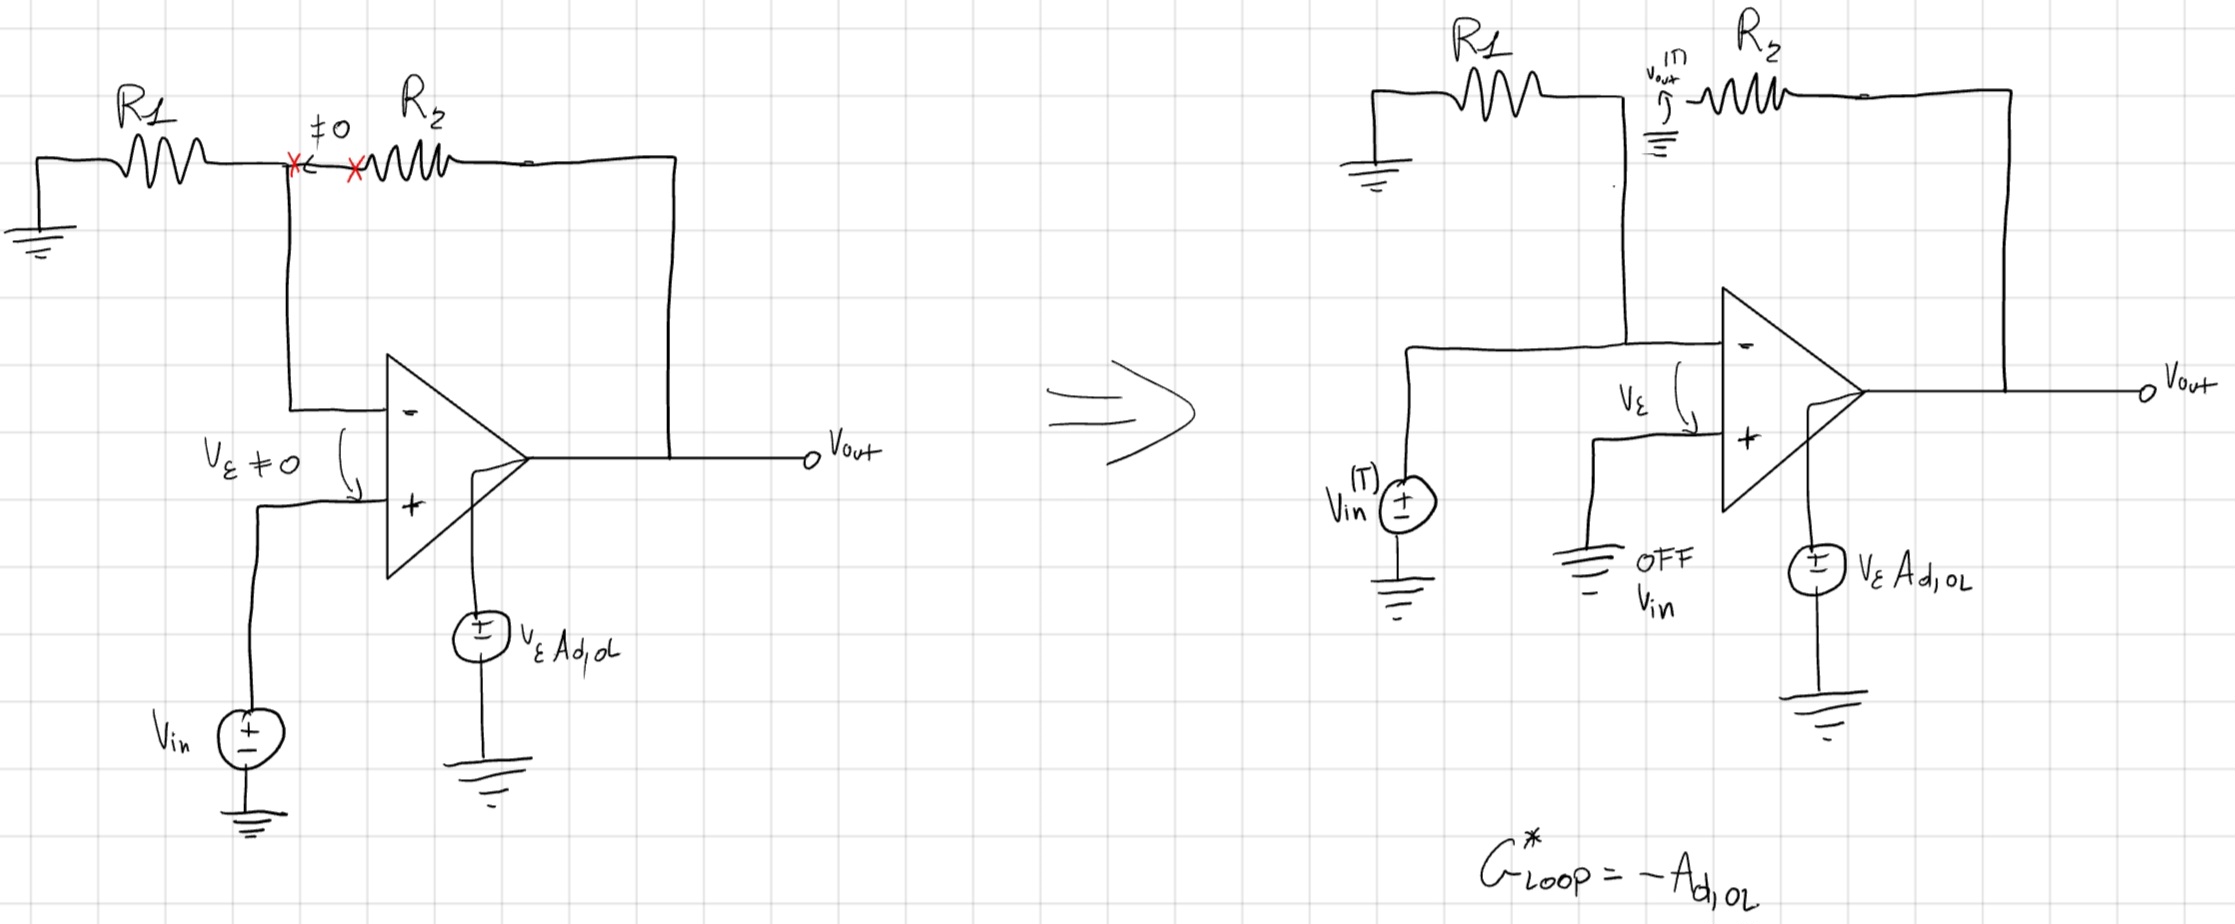 R1
R2
≠0
Vε ≠ 0
-
+
Vout
Vε Ad,OL
Vin
R1
Vout(T)
R2
-
+
Vε
Vout
Vin(T)
OFF
Vin
Vε Ad,OL
G*LOOP = -Ad,OL